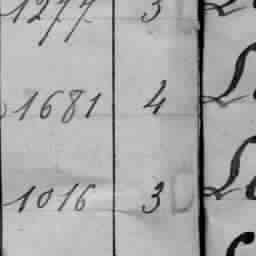 1277 3
1681 4
1016 3